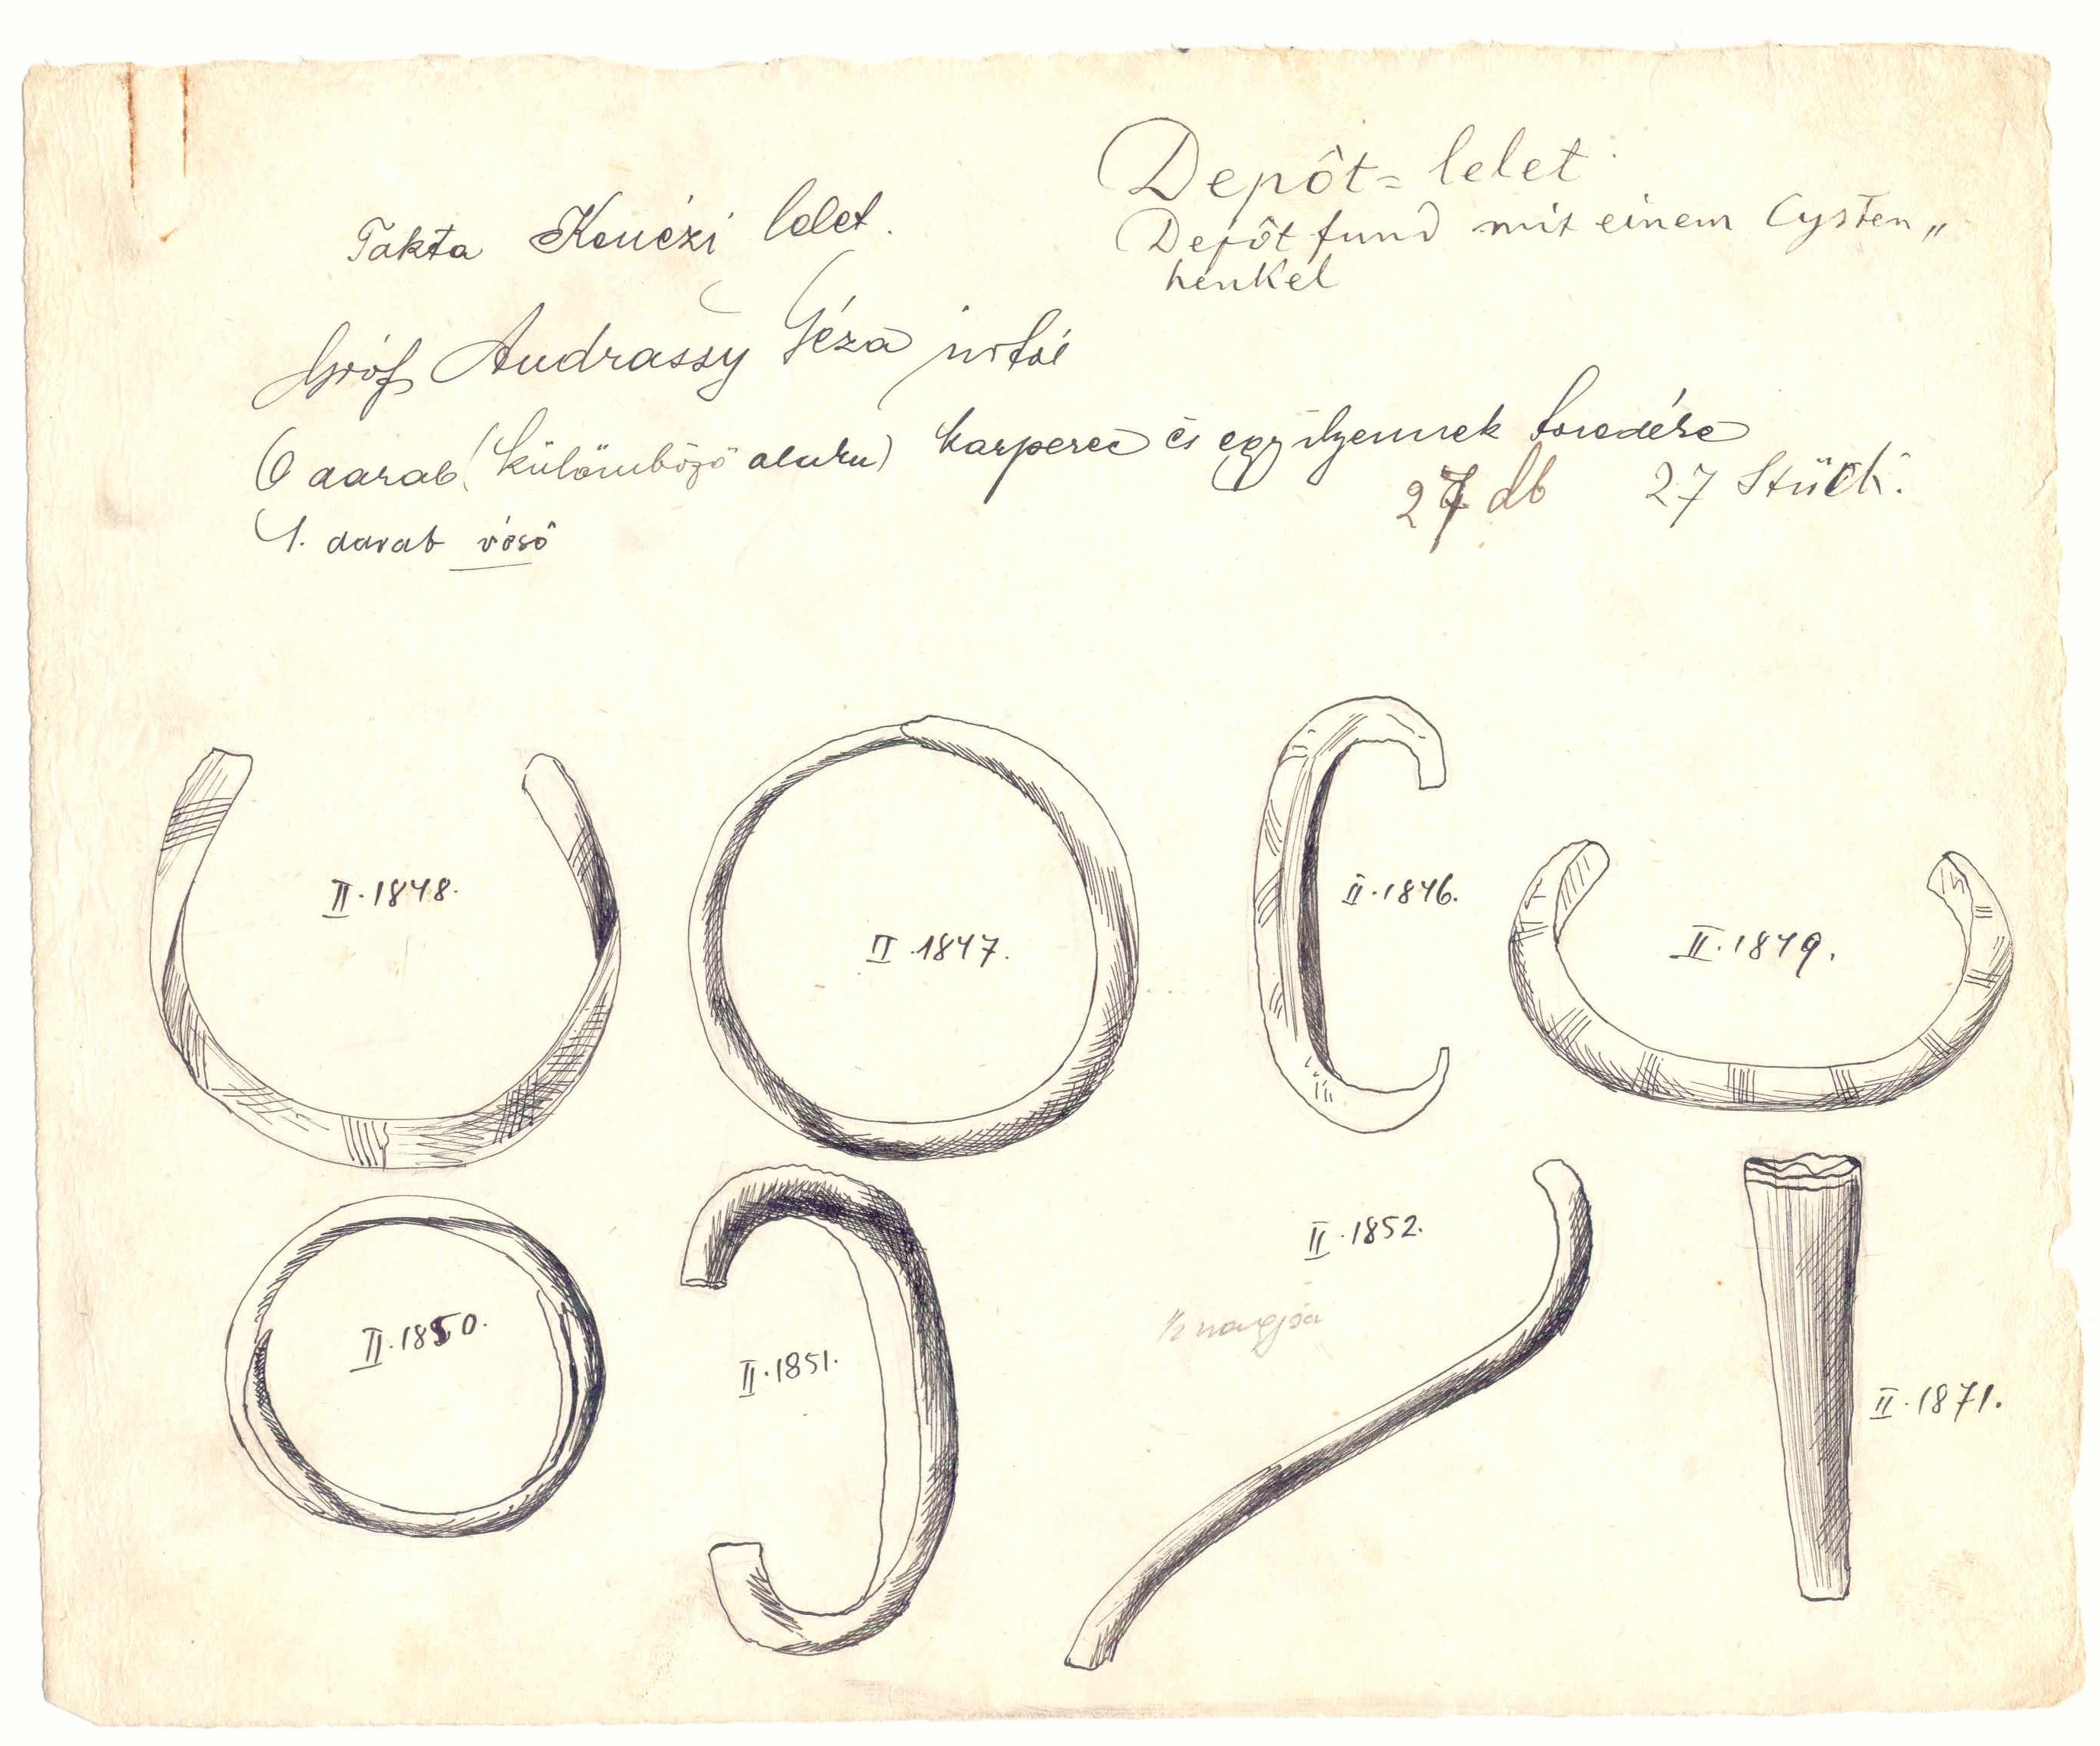 Depôt= lelet
Depôt fund mit einem Cysten„
henkel
Takta Kenézi lelet.
Gróf Andrassy Géza úrtól
6 darab (külömböző alaku) karperec és egy ilyennek töredéke
27 db 27 Stück.
1. darab véső
II. 1848.
II. 1847.
II. 1846.
II. 1849.
II. 1850.
II. 1851.
II. 1852.
½ nagysá
II. 1871.